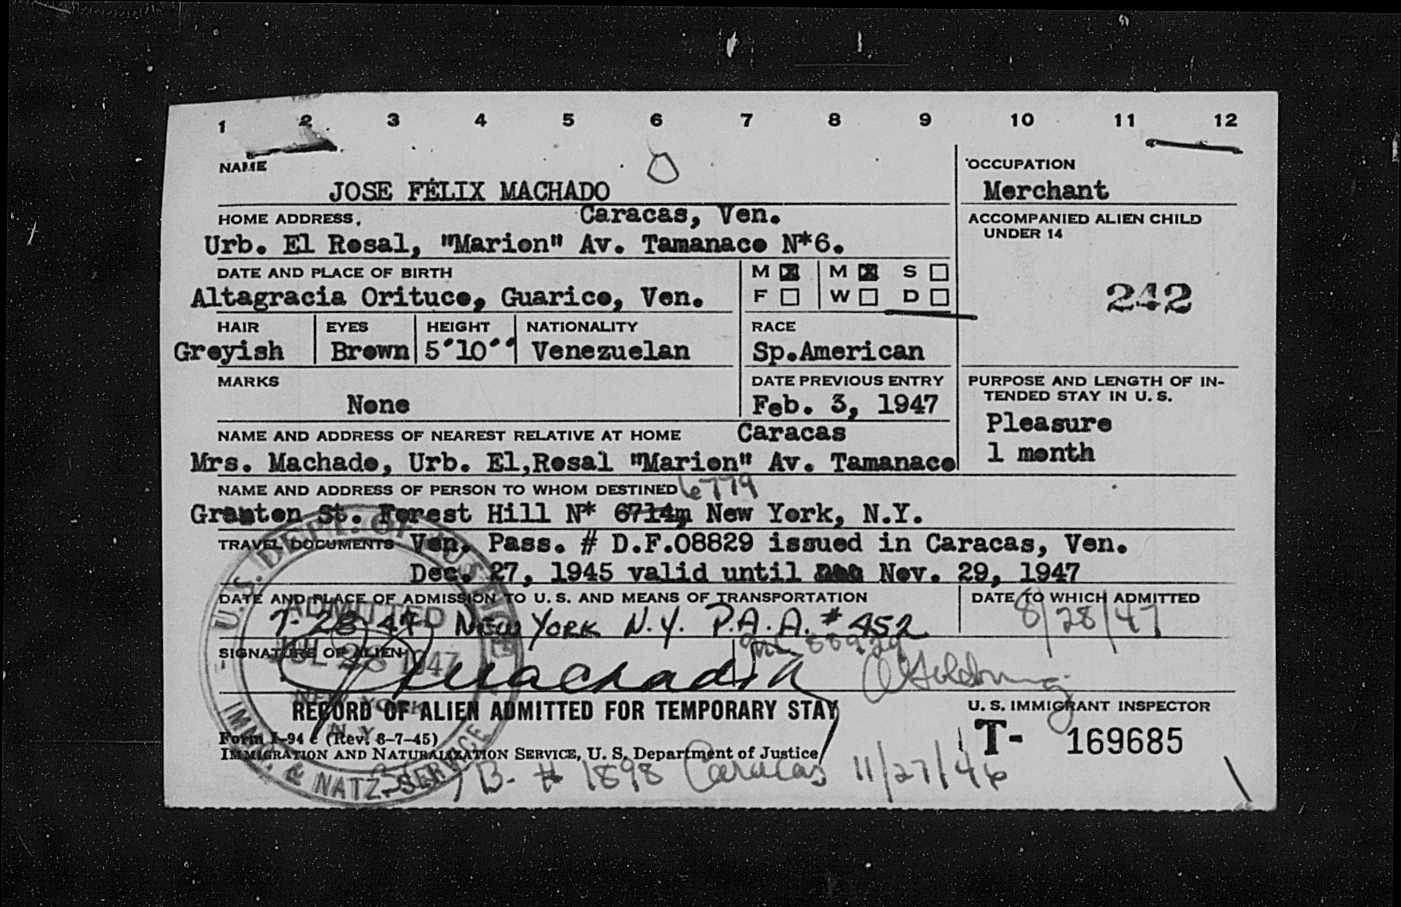 1 2 3 4 5 6 7 8 9 10 11 12
NAME
JOSE FÉLIX MACHADO
OCCUPATION
Merchant
HOME ADDRESS, Caracas, Ven.
Urb. El Rosal, "Marion" Av. Tamanaco N*6.
ACCOMPANIED ALIEN CHILD
UNDER 14
242
DATE AND PLACE OF BIRTH
Altagracia Orituco, Guarico, Ven.
M ☒ M ☒ S ☐
F ☐ W ☐ D ☐
HAIR EYES HEIGHT NATIONALITY RACE
Greyish Brown 5'10'' Venezuelan Sp.American
MARKS
None
DATE PREVIOUS ENTRY
Feb. 3, 1947
PURPOSE AND LENGTH OF IN-
TENDED STAY IN U. S.
Pleasure
1 month
NAME AND ADDRESS OF NEAREST RELATIVE AT HOME Caracas
Mrs. Machado, Urb. El,Rosal "Marion" Av. Tamanaco
NAME AND ADDRESS OF PERSON TO WHOM DESTINED 6779
Granton St. Forest Hill N* 6714, New York, N.Y.
TRAVEL DOCUMENTS Ven. Pass. # D.F.08829 issued in Caracas, Ven.
Dec. 27, 1945 valid until Nov. 29, 1947
DATE AND PLACE OF ADMISSION TO U. S. AND MEANS OF TRANSPORTATION
7-28-47 NEW YORK N.Y. P.A.A. # 452
DATE TO WHICH ADMITTED
8/28/47
SIGNATURE OF ALIEN
Machado
RECORD OF ALIEN ADMITTED FOR TEMPORARY STAY
U. S. IMMIGRANT INSPECTOR
Form I-94 c (Rev. 8-7-45)
IMMIGRATION AND NATURALIZATION SERVICE, U. S. Department of Justice
T- 169685
B- # 1898 Caracas 11/27/46
U.S. DEPT. OF JUSTICE
ADMITTED
JUL 28 1947
NEW YORK
N.Y.
IMM. & NATZ. SERVICE